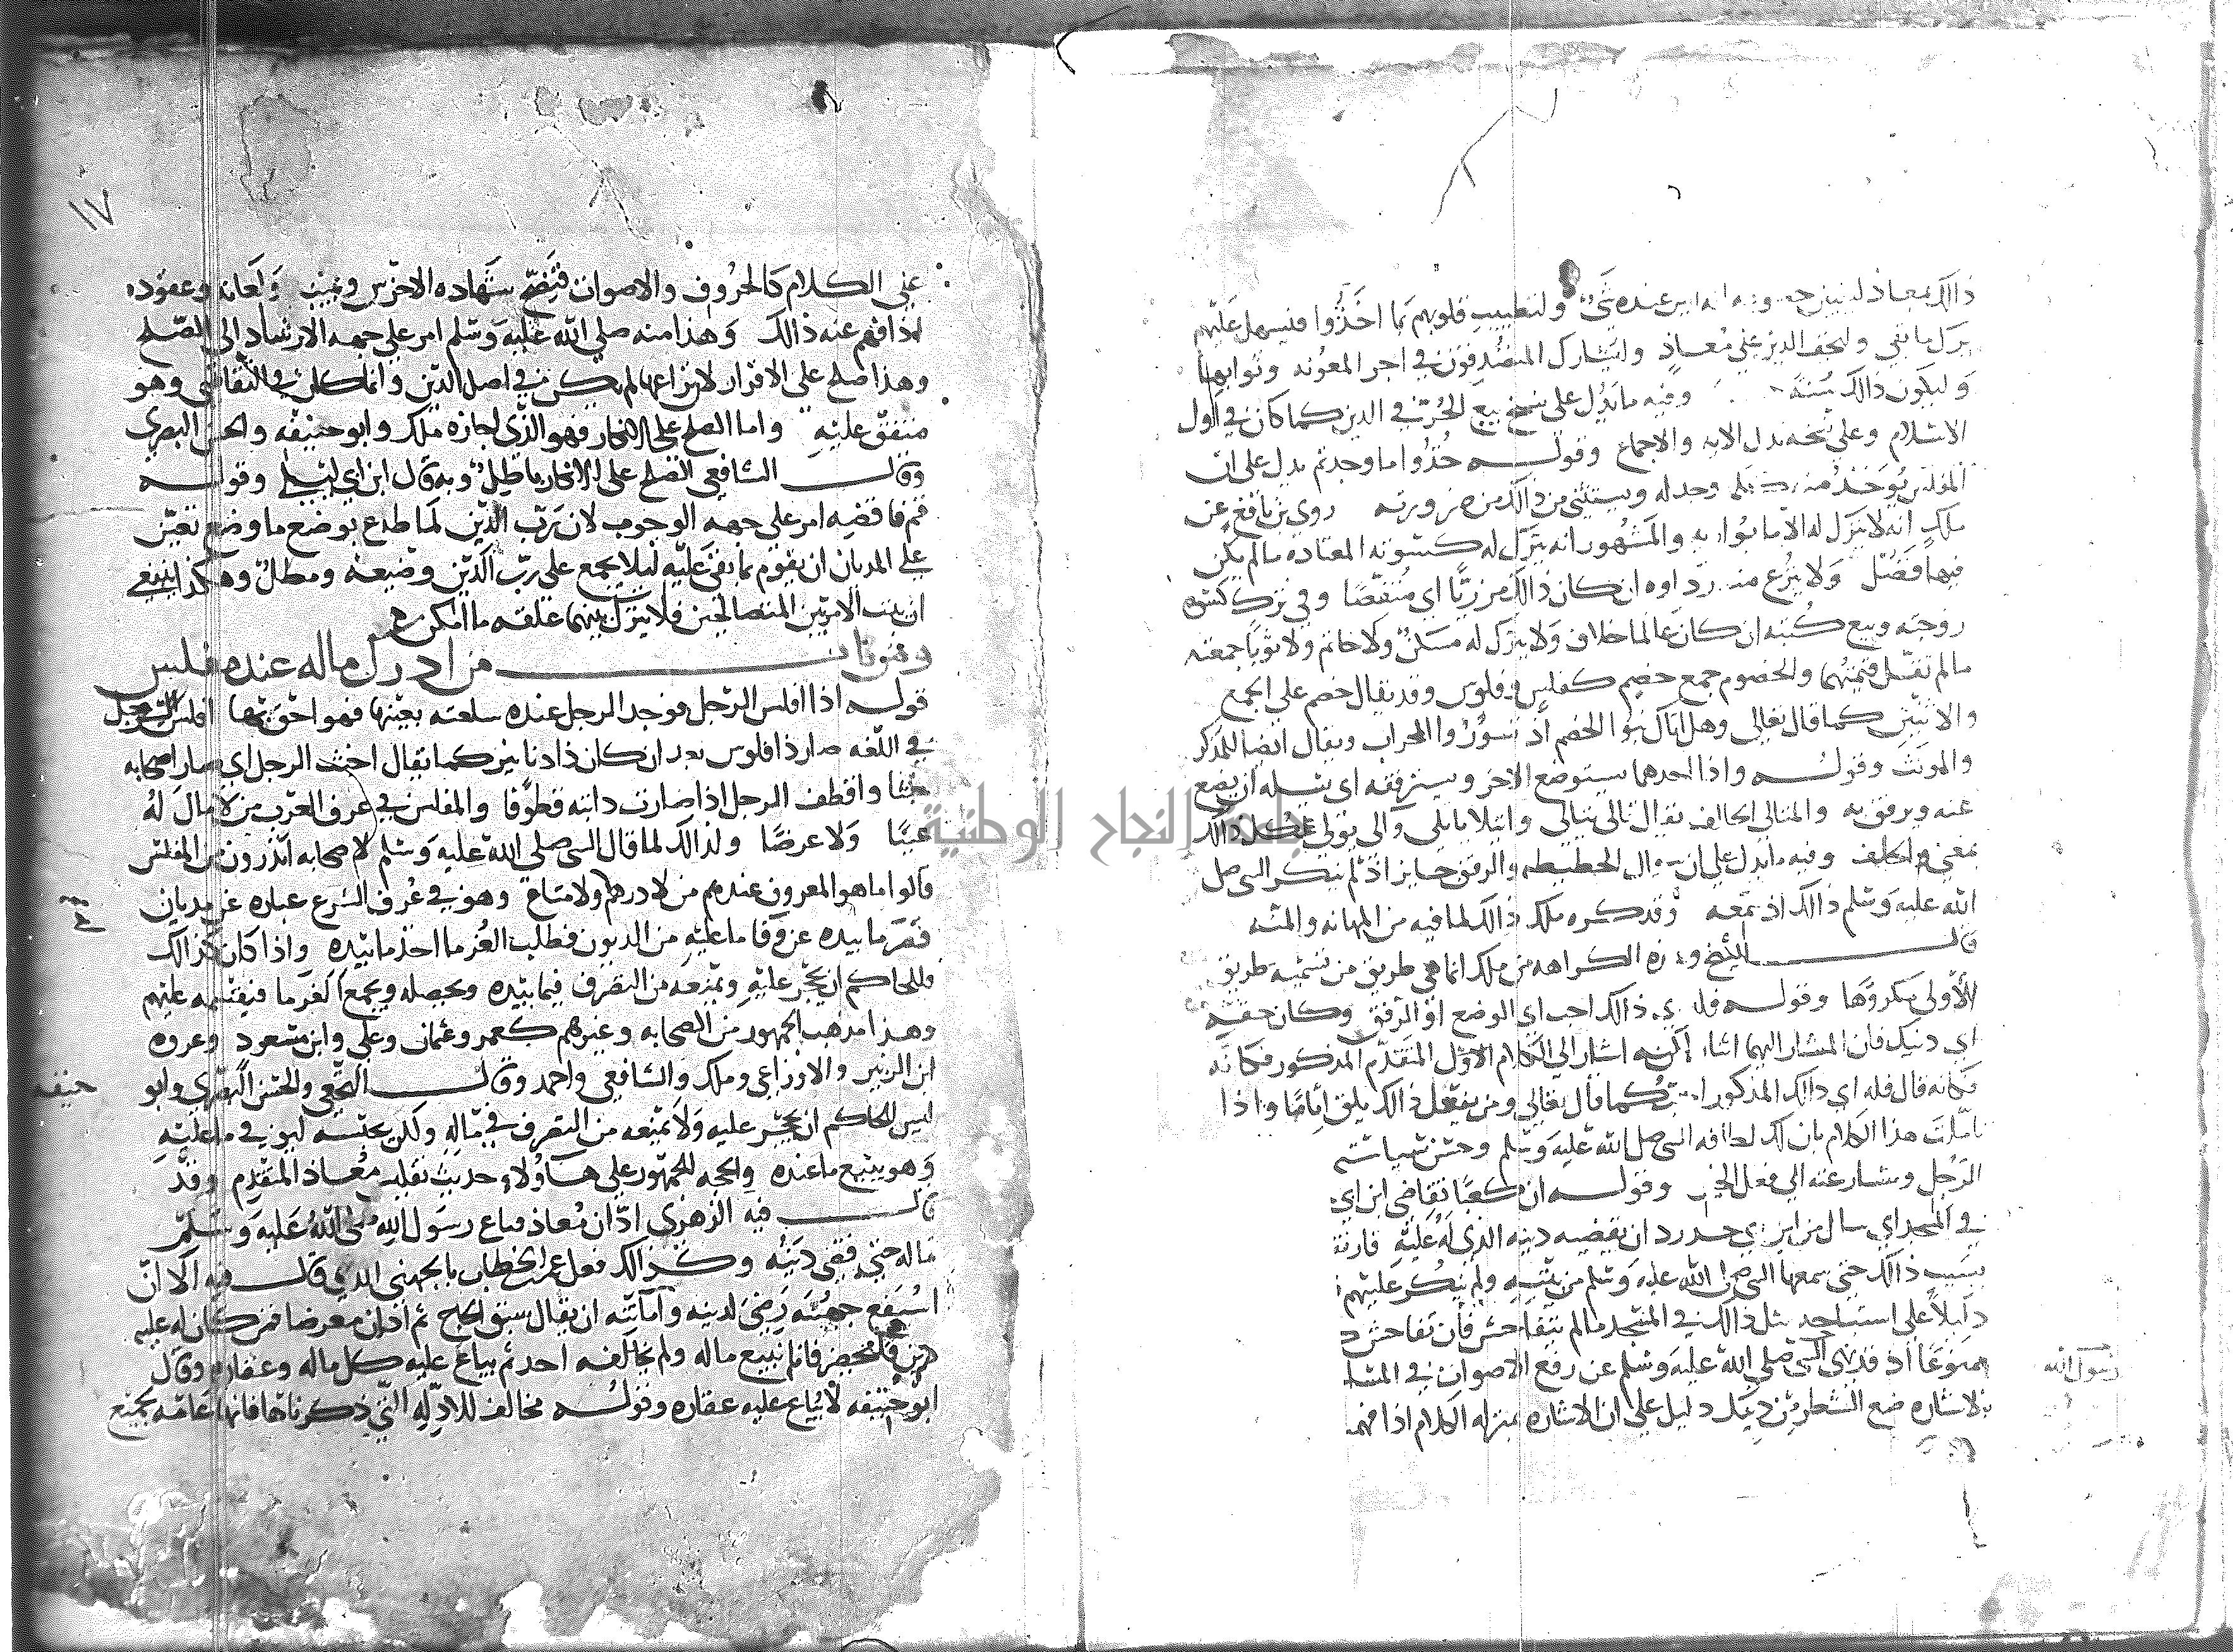 ذالك بمعاذ ليتبين عنده شيء ولتطييب قلوبهم بما اخذوا فيسهل عليهم
ترك ما بقي وليخف الدين على معاذ وليشارك المتصدقون في اجر المعونه وثوابها
وليكون ذالك سنة وفيه ما يدل على نسخ بيع الحر في الدين كما كان في اول
الاسلام وعلى نسخه تدل الايه والاجماع وقوله خذوا ما وجدتم يدل على ان
المفلس يوخذ منه كلما وجد له ويستثنى من ذالك من ضرورته روى بن نافع عن
ملك انه لا يترك له الا ما يواريه والمشهور انه يترك له كسوته المعتاده ما لم يكن
فيها فضل ولا ينزع منه رداوه ان كان ذالك مزريا اي منقصا وفي ترك كسوه
زوجته وبيع كتبه ان كان عالما خلاف ولا يترك له مسكن ولا خاتم ولا ثوبا جمعته
ما لم تقل قيمتهما والخصوم جمع خصم كفلس وفلوس وقد يقال خصم على الجمع
والاثنين كما قال تعالى وهل اتاك نبوا الخصم اذ تسوروا المحراب ويقال ايضا للمذكر
والمونث وقوله واذا احدهما يستوضع الاخر ويسترفقه اي يسله ان يضع
عنه ويرفق به والمتالي الحالف يقال تالى يتالى وايتلا ياتلي وآلى يولي كل ذالك
بمعنى الحلف وفيه ما يدل على ان سوال الحطيطه والرفق جايز اذ لم ينكر النبي صلى
الله عليه وسلم ذالك اذ سمعه وقد كره ملك ذالك لما فيه من المهانه والمنه
قال الشيخ وهذه الكراهه من ملك انما هي طريق من تسميه طريق
الاولى مكروها وقوله فله اي ذالك احب اي الوضع او الرفق وكان حقه
اي ذنيك فان المشار اليهما اثنان لكنه اشار الى الكلام الاول المتقدم المذكور فكانه
فكانه قال فله اي ذالك المذكور احب كما قال تعالى ومن يفعل ذالك يلق اثاما واذا
تاملت هذا الكلام بان لك لطافه النبي صلى الله عليه وسلم وحسن سياسته
الرجل ومشارعته الى فعل الخير وقوله ان كعبا تقاضى ابن ابي
في المسجد اي سال من ابن ابي حدرد ان يقضيه دينه الذي له عليه فارتفعت
بسبب ذالك حتى سمعها النبي صلى الله عليه وسلم من بيته ولم ينكر عليهم
دليلا على استباحه مثل ذالك في المسجد ما لم يتفاحش فان تفاحش
ممنوعا اذ قد نهى النبي صلى الله عليه وسلم عن رفع الاصوات في المساجد
رسول الله
بالاشاره ضع الشطر من دينك دليل على ان الاشاره بمنزله الكلام اذا فهمت
١٧
على الكلام كالحروف والاصوات فتصح شهاده الاخرس ويمينه ولعانه وعقوده
اذا فهم عنه ذالك وهذا منه صلى الله عليه وسلم امر على جهه الارشاد الى الصلح
وهذا صلح على الاقرار لان نزاعهما لم يكن في اصل الدين وانما كان في التقاضي وهو
متفق عليه واما الصلح على الانكار فهو الذي اجازه ملك وابو حنيفه والحسن البصري
وقال الشافعي الصلح على الانكار باطل وبه قال ابن ابي ليلى وقوله
قم فاقضه امر على جهه الوجوب لان رب الدين لما طاع بوضع ما وضع تعين
على المديان ان يقوم بما بقي عليه ليلا يجمع على رب الدين وضيعه ومطل وهكذا ينبغي
ان يبت الامر بين المتصالحين فلا يترك بينهما علقه ما امكن
ومن باب من ادرك ماله عند مفلس
قوله اذا افلس الرجل فوجد الرجل عنده سلعته بعينها فهو احق بها افلس الرجل
في اللغه صار ذا فلوس بعد ان كان ذا دنانير كما يقال اخبث الرجل اي صار اصحابه
خبثا واقطف الرجل اذا صارت دابته قطوفا والمفلس في عرف العرب من لا مال له
عينا ولا عرضا ولذالك لما قال النبي صلى الله عليه وسلم لاصحابه اتدرون من المفلس
قالوا ما هو المعروف عندهم من لا درهم له ولا متاع وهو في عرف الشرع عباره عن مديان
قصر ما بيده عن وفا ما عليه من الديون فطلب الغرما اخذ ما بيده واذا كان كذالك
فللحاكم ان يحجر عليه ويمنعه من التصرف فيما بيده ويحصله ويجمع الغرما فيقسمه عليهم
وهذا مذهب الجمهور من الصحابه وغيرهم كعمر وعثمان وعلي وابن مسعود وعروه
ابن الزبير والاوزاعي وملك والشافعي واحمد وقال النخعي والحسن البصري وابو حنيفه
ليس للحاكم ان يحجر عليه ولا يمنعه من التصرف في ماله ولكن يحبسه ليوفي ما عليه
وهو يبيع ما عنده والحجه للجمهور على هاولاء حديث تفليس معاذ المتقدم وقد
قال فيه الزهري ادان معاذ فباع رسول الله صلى الله عليه وسلم
ماله حتى قضى دينه وكذالك فعل عمر بن الخطاب بالجهني الذي قال فيه الا ان
اسيفع جهينه رضي لدينه وامانته ان يقال سبق الحاج ثم ادان معرضا فمن كان له عليه
دين فليحضر فانا نبيع ماله ولم يخالفه احد ثم يباع عليه كل ماله وعقاره وقال
ابو حنيفه لا يباع عليه عقاره وقوله مخالف للادله التي ذكرناها فانها عامه لجميع
جامعة النجاح الوطنية